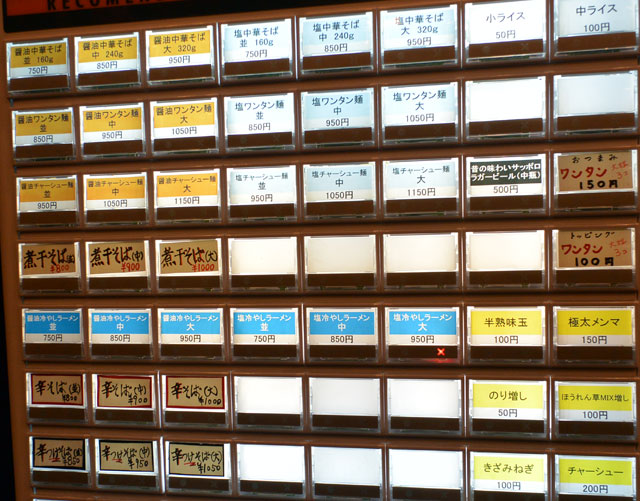 RECOMEN
醤油中華そば
並 160g
750円
醤油中華そば
中 240g
850円
醤油中華そば
大 320g
950円
塩中華そば
並 160g
750円
塩中華そば
中 240g
850円
塩中華そば
大 320g
950円
小ライス
50円
中ライス
100円
醤油ワンタン麺
並
850円
醤油ワンタン麺
中
950円
醤油ワンタン麺
大
1050円
塩ワンタン麺
並
850円
塩ワンタン麺
中
950円
塩ワンタン麺
大
1050円
醤油チャーシュー麺
並
950円
醤油チャーシュー麺
中
1050円
醤油チャーシュー麺
大
1150円
塩チャーシュー麺
並
950円
塩チャーシュー麺
中
1050円
塩チャーシュー麺
大
1150円
昔の味わいサッポロ
ラガービール(中瓶)
500円
おつまみ
ワンタン
150円
煮干そば(並)
¥800
煮干そば(中)
¥900
煮干そば(大)
¥1000
トッピング
ワンタン
100円
醤油冷やしラーメン
並
750円
醤油冷やしラーメン
中
850円
醤油冷やしラーメン
大
950円
塩冷やしラーメン
並
750円
塩冷やしラーメン
中
850円
塩冷やしラーメン
大
950円
半熟味玉
100円
極太メンマ
150円
辛そば(並)
¥800
辛そば(中)
¥900
辛そば(大)
¥1000
のり増し
50円
ほうれん草MIX増し
100円
辛つけそば(並)
¥850
辛つけそば(中)
¥950
辛つけそば(大)
¥1050
きざみねぎ
100円
チャーシュー
200円